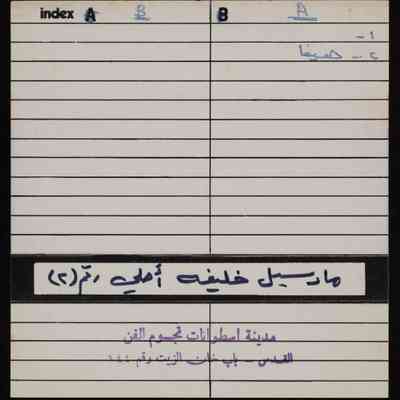 index A B B A
١ -
٢ - حيفا
مارسيل خليفه أصلي رقم (٢)
مدينة اسطوانات نجوم الفن
القدس - باب خان الزيت رقم ١٤٤